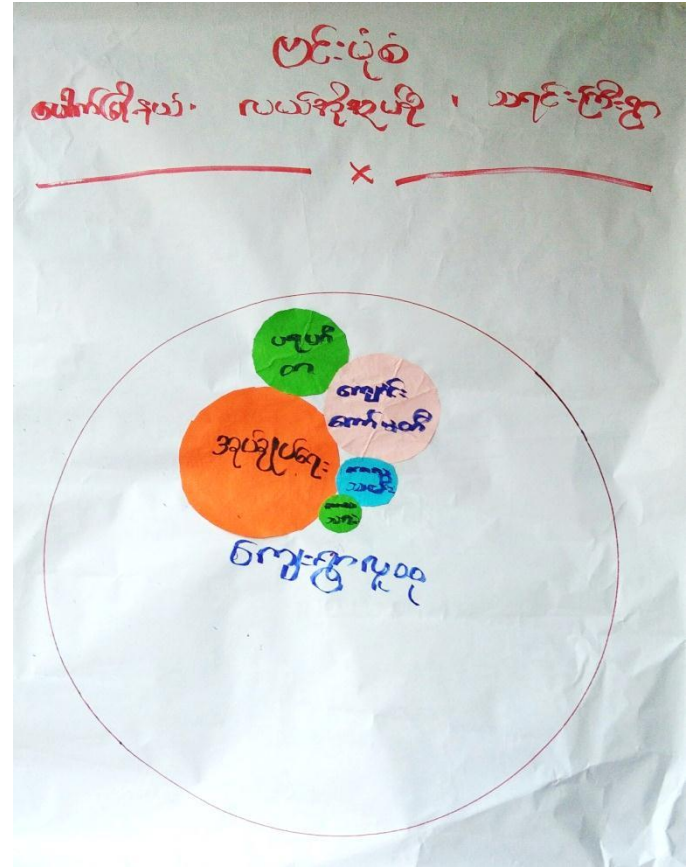 ဗင်းပုံစံ
ပေါက်မြို့နယ်၊ လယ်အိုအုပ်စု ၊ သရင်းကြီးရွာ
x
ပရဟိ
တ
ကျောင်း
ကော်မတီ
အုပ်ချုပ်ရေး
ကျေးရွာလူထု